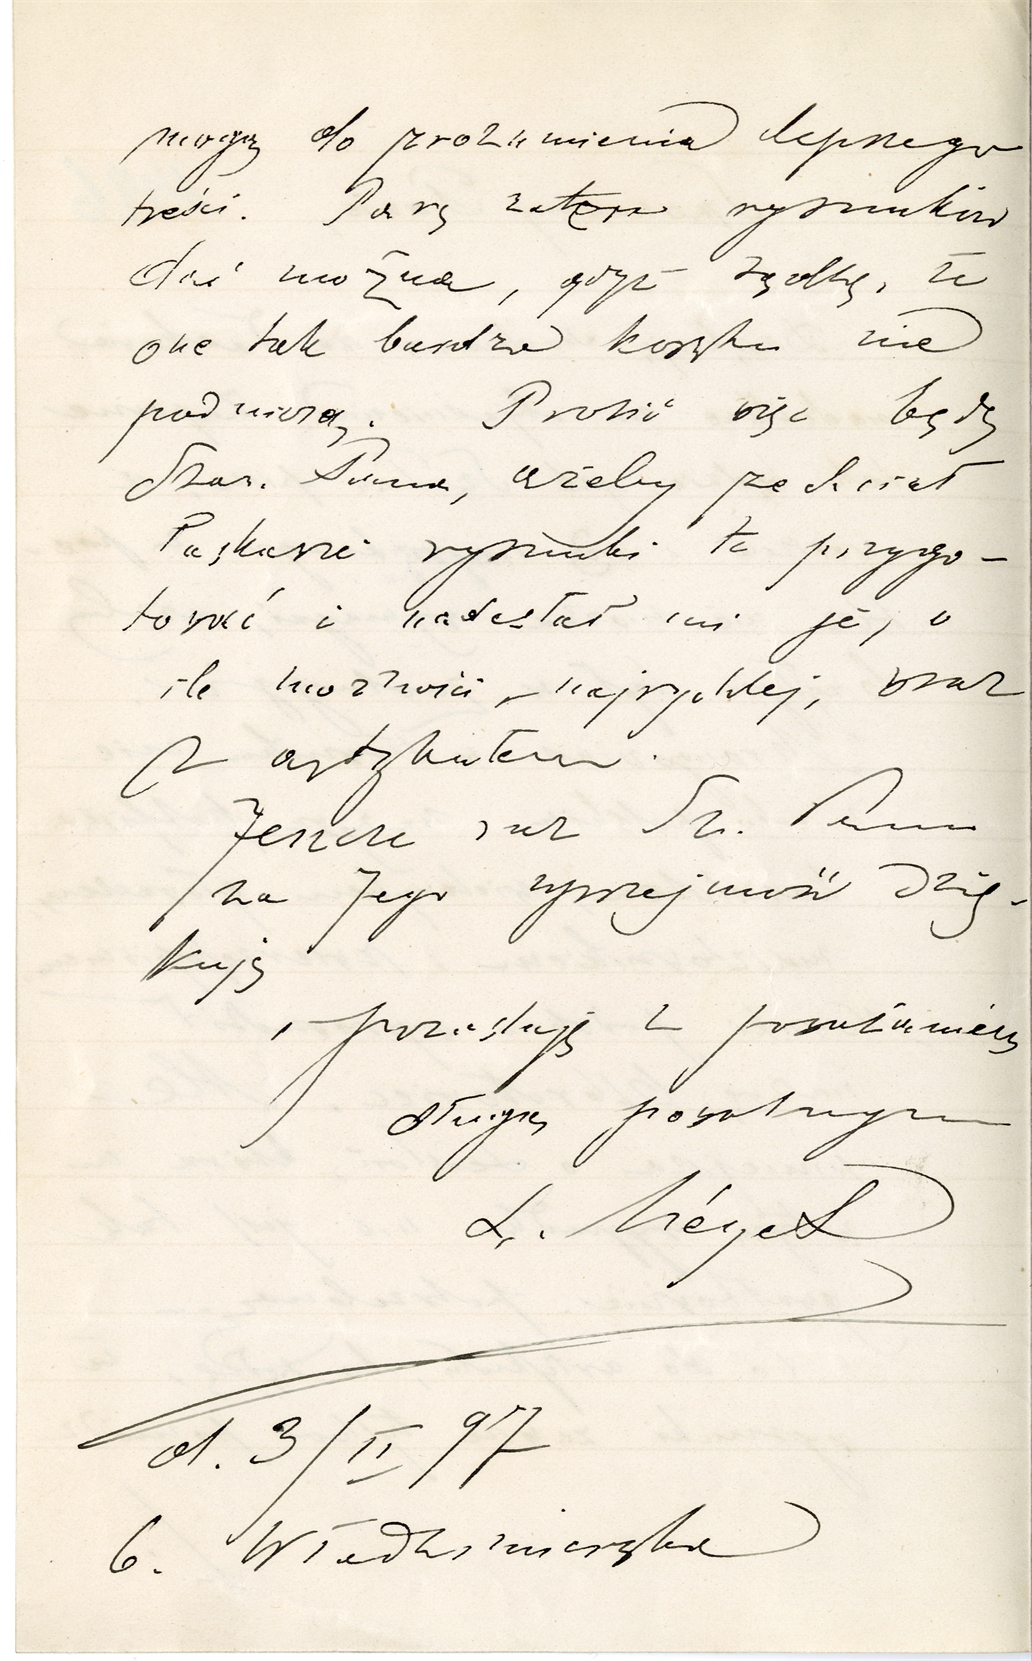 mogą do zrozumienia lepszego
treści. Parę zatem rysunków
dać można, gdyż sądzę, że
one tak bardzo kosztu nie
podniosą. Prosić więc będę
Szan. Pana, ażeby zechciał
łaskawie rysunki te przygo-
tować i nadesłać mi je, o
ile możności, najrychlej, wraz
z artykułem.
Jeszcze raz Sz. Panu
za Jego uprzejmość dzię-
kuję
i pozostaję z poważaniem
sługą powolnym
L. Méyet
d. 3/II 97
6. Włodzimierska